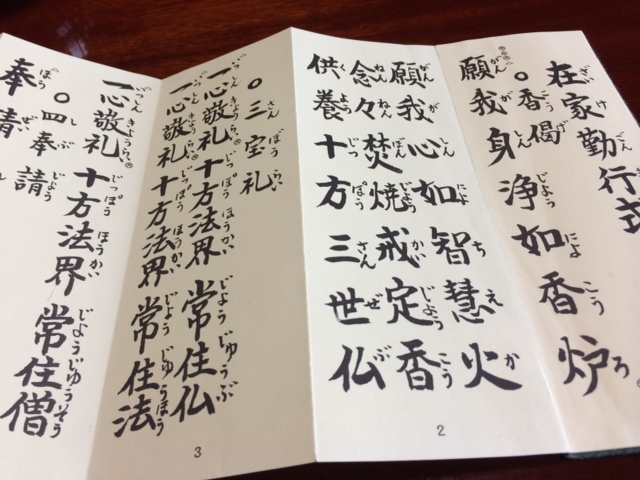 在家勤行式
○香偈
願我身浄如香炉
願我心如智慧火
念々焚焼戒定香
供養十方三世仏
2
○三宝礼
一心敬礼十方法界常住仏
一心敬礼十方法界常住法
3
一心敬礼十方法界常住僧
○四奉請
奉請